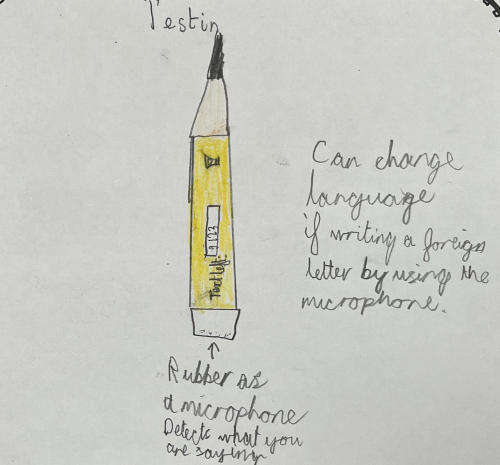 Testin
Text left:
Can change
language
if writing a foreign
letter by using the
microphone.
Rubber as
a microphone
Detects what you
are saying